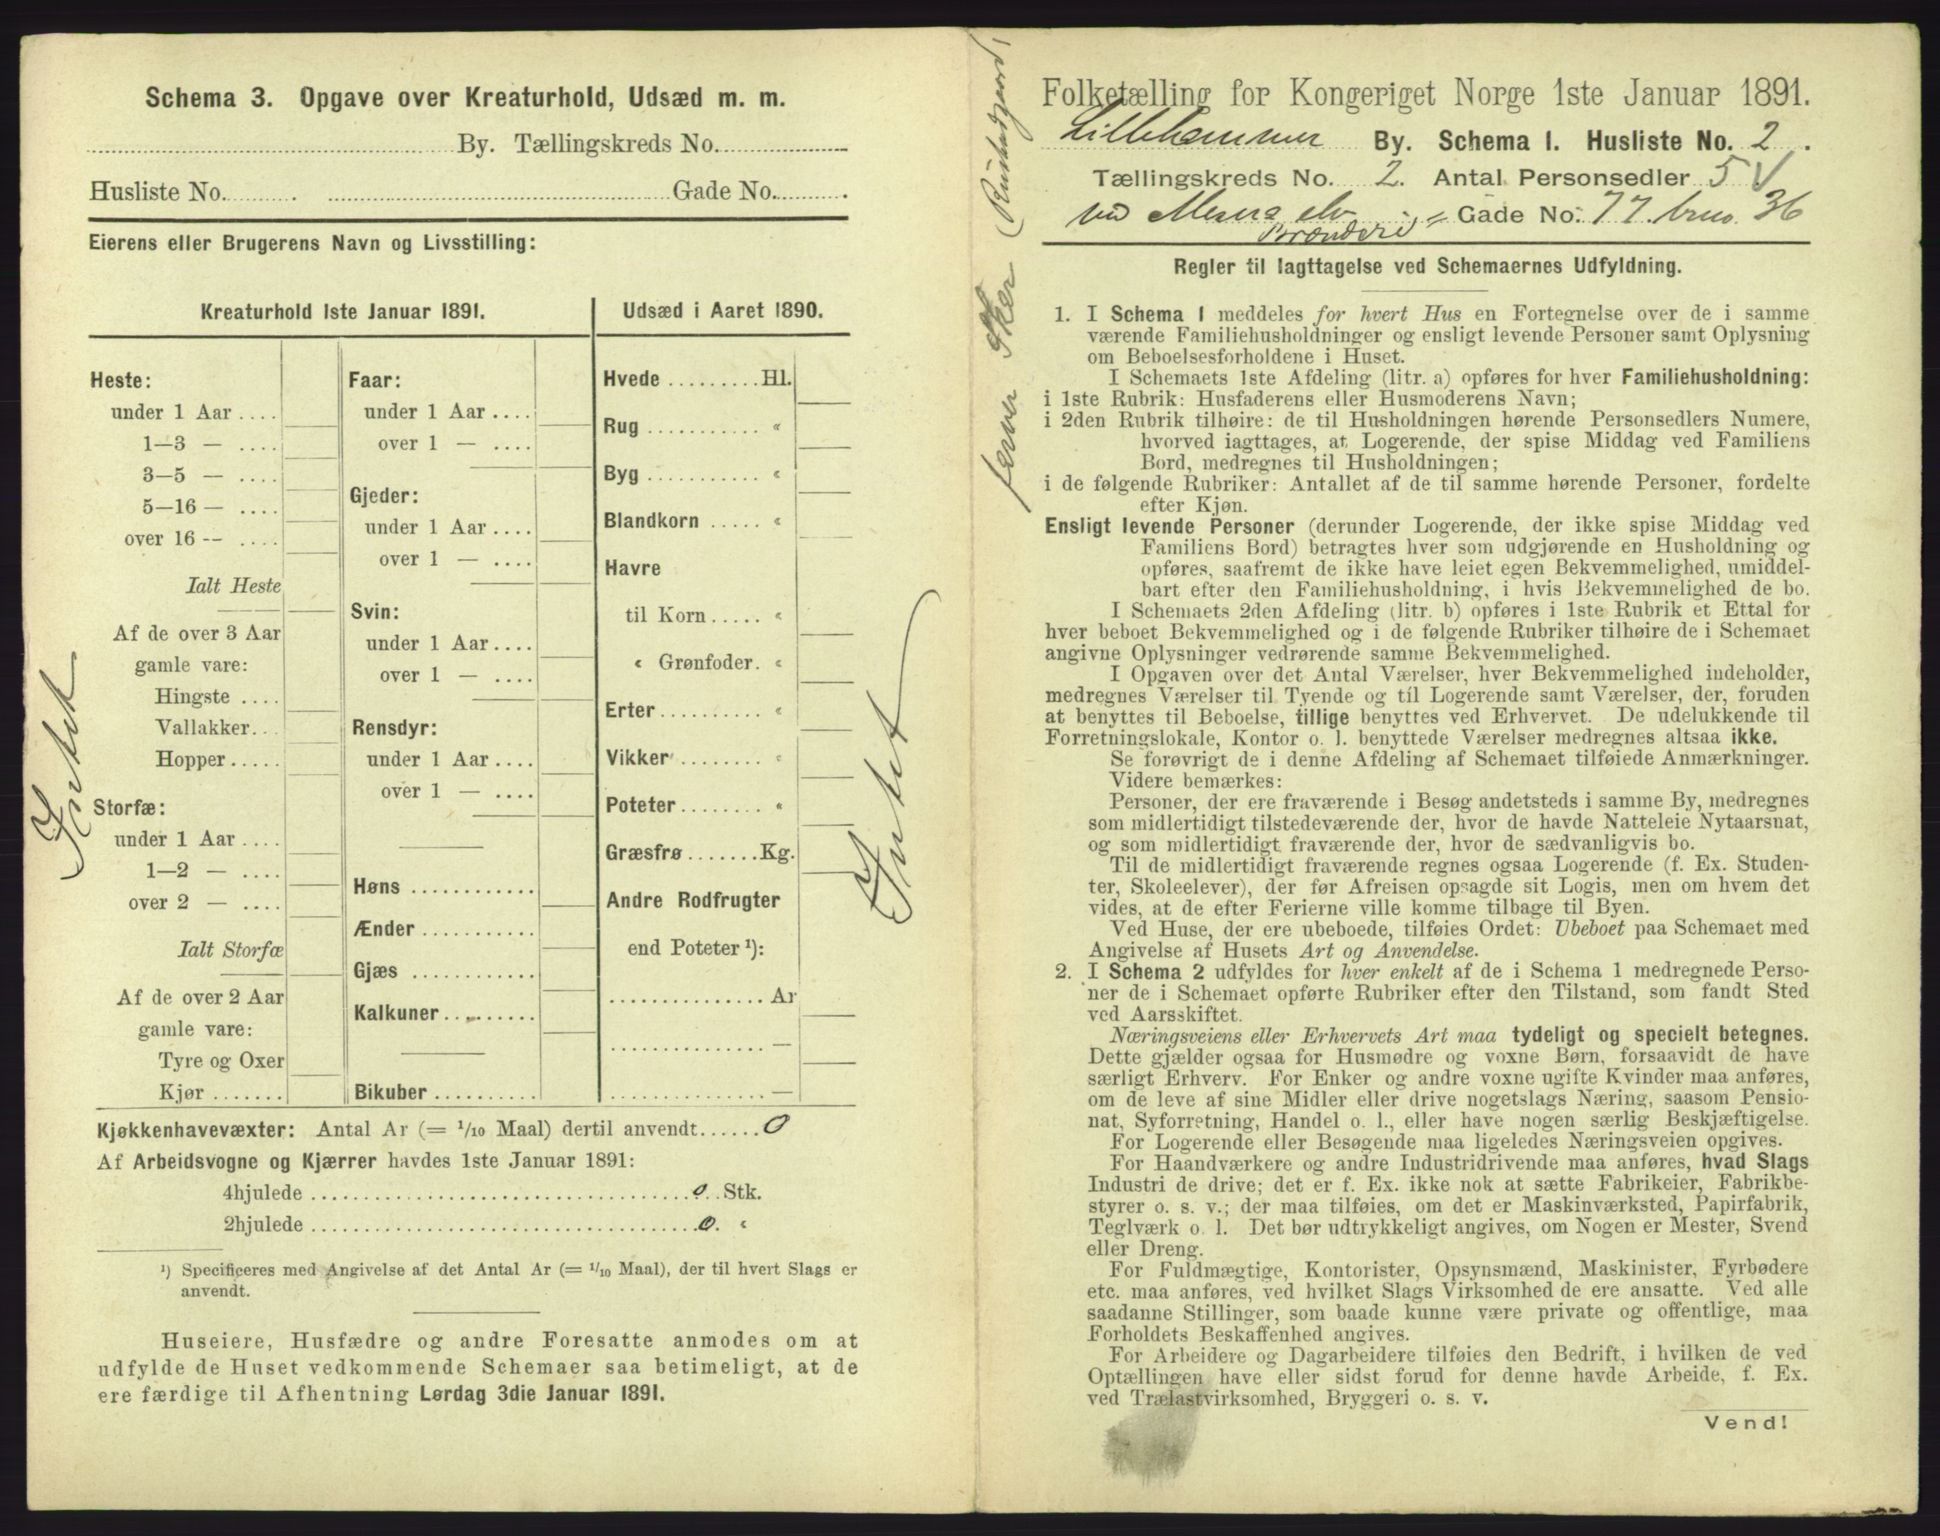 Schema 3. Opgave over Kreaturhold, Udsæd m. m.
By. Tællingskreds No.
Husliste No. Gade No.
Eierens eller Brugerens Navn og Livsstilling:
Kreaturhold 1ste Januar 1891.
Heste:
under 1 Aar ....
1—3 — ....
3—5 — ....
5—16 — ....
over 16 — ....
Ialt Heste
Af de over 3 Aar
gamle vare:
Hingste ....
Vallakker...
Hopper .....
Storfæ:
under 1 Aar ....
1—2 — ....
over 2 — ....
Ialt Storfæ
Af de over 2 Aar
gamle vare:
Tyre og Oxer
Kjør .......
Intet
Faar:
under 1 Aar ....
over 1 — ....
Gjeder:
under 1 Aar ....
over 1 — ....
Svin:
under 1 Aar ....
over 1 — ....
Rensdyr:
under 1 Aar ....
over 1 — ....
Høns ............
Ænder ...........
Gjæs ............
Kalkuner .........
Bikuber ..........
Udsæd i Aaret 1890.
Hvede .........Hl.
Rug ........... «
Byg ........... «
Blandkorn ..... «
Havre
til Korn ..... «
« Grønfoder. «
Erter .......... «
Vikker ........ «
Poteter ........ «
Græsfrø .......Kg.
Andre Rodfrugter
end Poteter ¹):
............... Ar
............... —
............... —
Intet
Kjøkkenhavevæxter: Antal Ar (= 1/10 Maal) dertil anvendt...... 0
Af Arbeidsvogne og Kjærrer havdes 1ste Januar 1891:
4hjulede .................. 0 Stk.
2hjulede .................. 0. «
¹) Specificeres med Angivelse af det Antal Ar (= 1/10 Maal), der til hvert Slags er
anvendt.
Huseiere, Husfædre og andre Foresatte anmodes om at
udfylde de Huset vedkommende Schemaer saa betimeligt, at de
ere færdige til Afhentning Lørdag 3die Januar 1891.
Folketælling for Kongeriget Norge 1ste Januar 1891.
Lillehammer By. Schema 1. Husliste No. 2.
Tællingskreds No. 2. Antal Personsedler 5 V
ved Mesna elv Gade No. 77. brno. 36
Brænderi
Regler til Iagttagelse ved Schemaernes Udfyldning.
1. I Schema 1 meddeles for hvert Hus en Fortegnelse over de i samme
værende Familiehusholdninger og ensligt levende Personer samt Oplysning
om Beboelsesforholdene i Huset.
I Schemaets 1ste Afdeling (litr. a) opføres for hver Familiehusholdning:
i 1ste Rubrik: Husfaderens eller Husmoderens Navn;
i 2den Rubrik tilhøire: de til Husholdningen hørende Personsedlers Numere,
hvorved iagttages, at Logerende, der spise Middag ved Familiens
Bord, medregnes til Husholdningen;
i de følgende Rubriker: Antallet af de til samme hørende Personer, fordelte
efter Kjøn.
Ensligt levende Personer (derunder Logerende, der ikke spise Middag ved
Familiens Bord) betragtes hver som udgjørende en Husholdning og
opføres, saafremt de ikke have leiet egen Bekvemmelighed, umiddel-
bart efter den Familiehusholdning, i hvis Bekvemmelighed de bo.
I Schemaets 2den Afdeling (litr. b) opføres i 1ste Rubrik et Ettal for
hver beboet Bekvemmelighed og i de følgende Rubriker tilhøire de i Schemaet
angivne Oplysninger vedrørende samme Bekvemmelighed.
I Opgaven over det Antal Værelser, hver Bekvemmelighed indeholder,
medregnes Værelser til Tyende og til Logerende samt Værelser, der, foruden
at benyttes til Beboelse, tillige benyttes ved Erhvervet. De udelukkende til
Forretningslokale, Kontor o. l. benyttede Værelser medregnes altsaa ikke.
Se forøvrigt de i denne Afdeling af Schemaet tilføiede Anmærkninger.
Videre bemærkes:
Personer, der ere fraværende i Besøg andetsteds i samme By, medregnes
som midlertidigt tilstedeværende der, hvor de havde Natteleie Nytaarsnat,
og som midlertidigt fraværende der, hvor de sædvanligvis bo.
Til de midlertidigt fraværende regnes ogsaa Logerende (f. Ex. Studen-
ter, Skoleelever), der før Afreisen opsagde sit Logis, men om hvem det
vides, at de efter Ferierne ville komme tilbage til Byen.
Ved Huse, der ere ubeboede, tilføies Ordet: Ubeboet paa Schemaet med
Angivelse af Husets Art og Anvendelse.
2. I Schema 2 udfyldes for hver enkelt af de i Schema 1 medregnede Perso-
ner de i Schemaet opførte Rubriker efter den Tilstand, som fandt Sted
ved Aarsskiftet.
Næringsveiens eller Erhvervets Art maa tydeligt og specielt betegnes.
Dette gjælder ogsaa for Husmødre og voxne Børn, forsaavidt de have
særligt Erhverv. For Enker og andre voxne ugifte Kvinder maa anføres,
om de leve af sine Midler eller drive nogetslags Næring, saasom Pensio-
nat, Syforretning, Handel o. l., eller have nogen særlig Beskjæftigelse.
For Logerende eller Besøgende maa ligeledes Næringsveien opgives.
For Haandværkere og andre Industridrivende maa anføres, hvad Slags
Industri de drive; det er f. Ex. ikke nok at sætte Fabrikeier, Fabrikbe-
styrer o. s. v.; der maa tilføies, om det er Maskinværksted, Papirfabrik,
Teglværk o. l. Det bør udtrykkeligt angives, om Nogen er Mester, Svend
eller Dreng.
For Fuldmægtige, Kontorister, Opsynsmænd, Maskinister, Fyrbødere
etc. maa anføres, ved hvilket Slags Virksomhed de ere ansatte. Ved alle
saadanne Stillinger, som baade kunne være private og offentlige, maa
Forholdets Beskaffenhed angives.
For Arbeidere og Dagarbeidere tilføies den Bedrift, i hvilken de ved
Optællingen have eller sidst forud for denne havde Arbeide, f. Ex.
ved Trælastvirksomhed, Bryggeri o. s. v.
Vend!